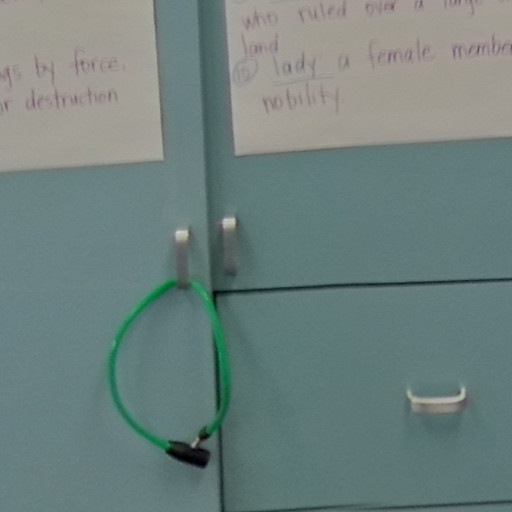 gs by force.
or destruction
who ruled over a large
land
10 lady a female member
nobility